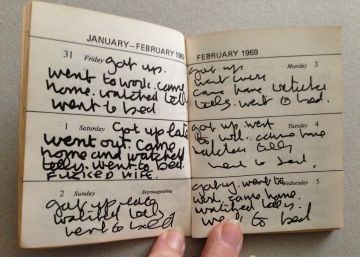 JANUARY–FEBRUARY 1969
31 Friday got up.
went to work. came
home. watched telly
went to bed
1 Saturday Got up late
went out. Came
home and watched
telly. went to bed
FUCKED WIFE.
2 Sunday Septuagesima
got up
watched telly
went to bed
FEBRUARY 1969
Monday 3
got up
went work
came home watched
telly. went to bed.
Tuesday 4
got up. went
to work. came home
watched telly
went to bed.
Wednesday 5
got up went to
work. came home.
watched telly.
went to bed